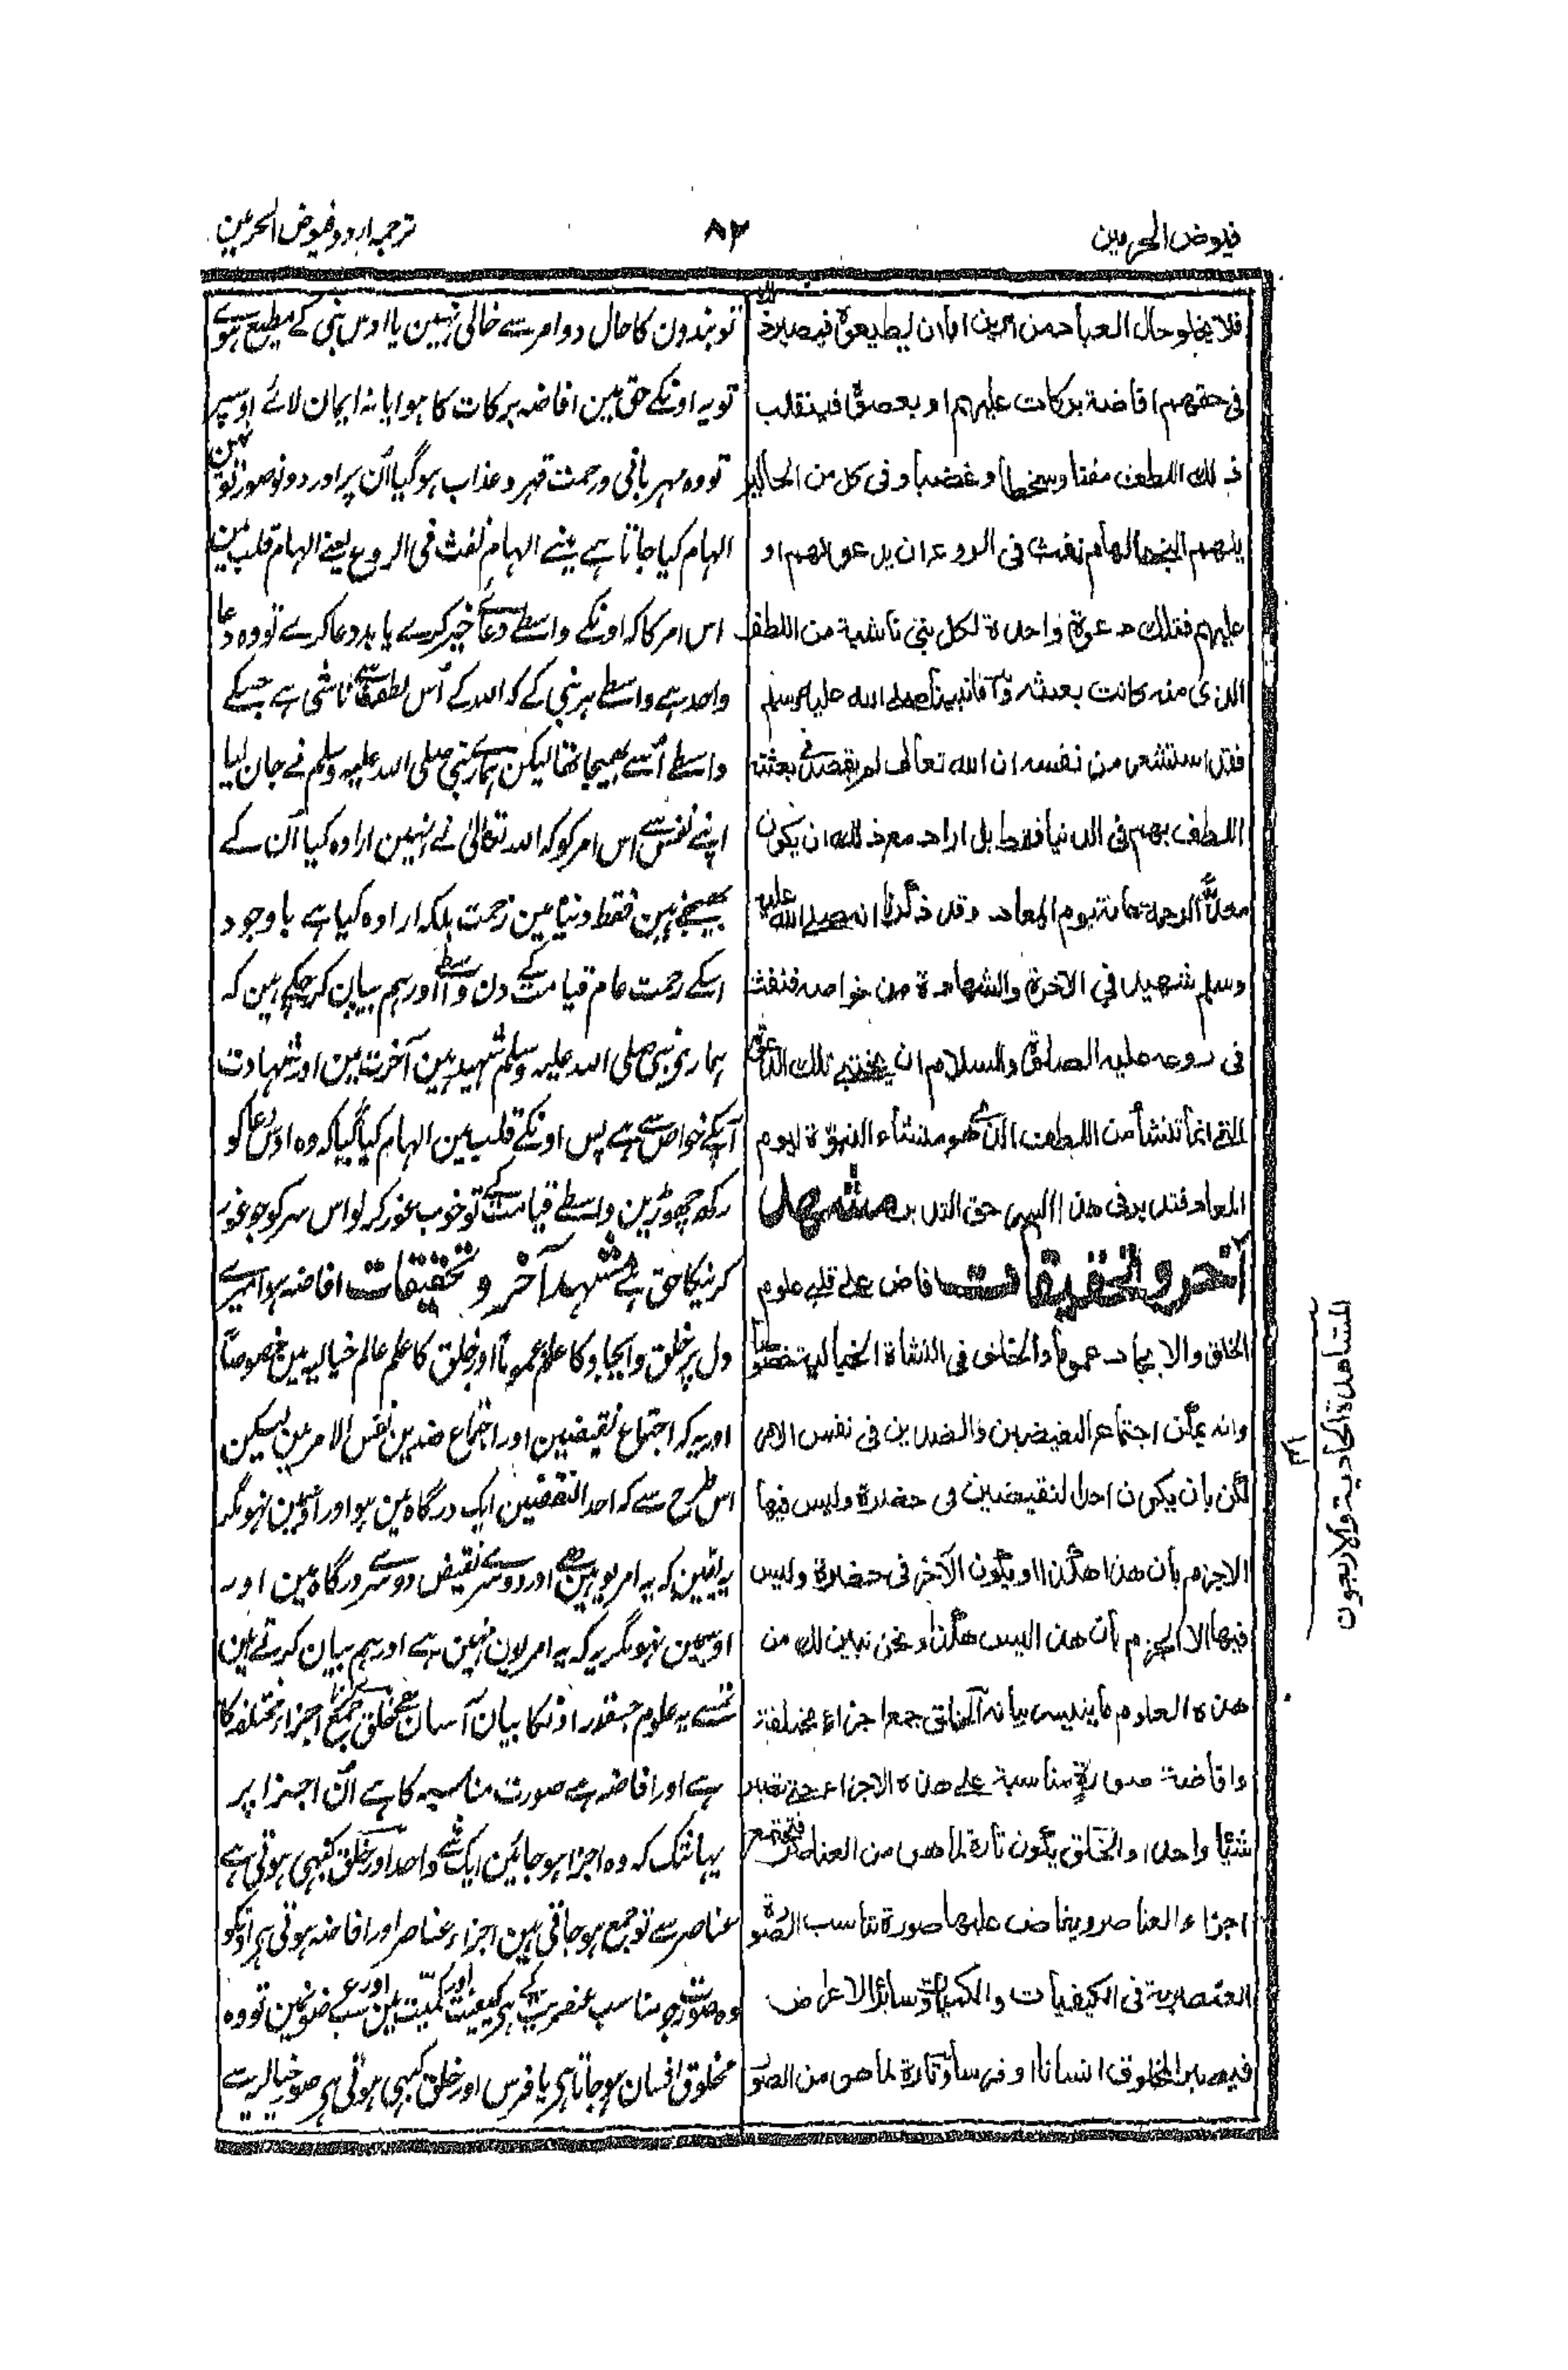 فیوض الحرمین
۸۲
ترجمہ اردو فیوض الحرمین
فلا یخلو حال العباد من امرین اما ان یطیعوہ فیصیر ذلک
فی حقہم افاضة برکات علیہم او یعصوہ فینقلب
ذلک اللطف مقتا وسخطا وغضبا وفی کل من الحالین
یلہم النبی الہام نفث فی الروع ان یدعو لہم او
علیہم فتلک دعوة واحدة لکل نبی ناشیة من اللطف
الذی منہ کانت بعثتہ واما نبینا صلی اللہ علیہ وسلم
فقد استشعر من نفسہ ان اللہ تعالی لم یقصد فی بعثتہ
اللطف بہم فی الدنیا فقط بل اراد مع ذلک ان یکون
معدا لرحمة عامة یوم المعاد وقد ذکرنا انہ صلی اللہ علیہ
وسلم شہید فی الآخرة والشہادة من خواصہ فنفث
فی روعہ علیہ الصلوة والسلام ان یختبی تلک الدعوة
التی انما تنشأ من اللطف الذی ھو منشاء النبوة لیوم
المعاد فتدبر فی ھذا السر حق التدبر مشہد
آخر وتحقیقات فاض علی قلبی علوم
الخلق والایجاد عموما والخلق فی النشاة الخیالیة خصوصا
وانہ یمکن اجتماع النقیضین والضدین فی نفس الامر
لکن بان یکون احد النقیضین فی حضرة ولیس فیہا
الا جزم بان ھذا ھکذا ویکون الآخر فی حضرة ولیس
فیہا الا الجزم بان ھذا لیس ھکذا ونحن نبین لک من
ھذہ العلوم ما یتیسر بیانہ الخلق جمع اجزاء مختلفة
وافاضة صورة مناسبة علی ھذہ الاجزاء حتی تصیر
شیئا واحدا والخلق یکون تارة لما ھو من العناصر فتجتمع
اجزاء العناصر ویفاض علیہا صورة تناسب الصورة
العنصریة فی الکیفیات والکمیات وسائر الاعراض
فیصیر المخلوق انسانا او فرسا وتارة لما ھو من الصور
تو بندون کا حال دو امر سے خالی نہین یا اوس نبی کے مطیع ہوے
تو یہ اونکے حق مین افاضہ برکات کا ہوا یا نہ ایمان لائے اوسپر
تو وہ مہربانی ورحمت قہر وعذاب ہوگیا اُن پر اور دونو صورتون مین
الہام کیا جاتا ہے نبی الہام نفث فی الروع یعنے الہام قلب مین
اس امر کا کہ اونکے واسطے دعاء خیر کرے یا بد دعا کرے تو وہ دعا
واحد ہے واسطے ہر نبی کے کہ اللہ کے اُس لطف سے ناشی ہے جسکے
واسطے اُسے بھیجا تھا لیکن ہمارے نبی صلی اللہ علیہ وسلم نے جان لیا
اپنے نفس سے اس امر کو کہ اللہ تعالیٰ نے نہین ارادہ کیا اُن کے
بھیجنے مین فقط دنیا مین رحمت بلکہ ارادہ کیا ہے باوجود
اسکے رحمت عام قیامت کے دن واسطے اور ہم بیان کرچکے ہین کہ
ہمارے نبی صلی اللہ علیہ وسلم شہید ہین آخرت مین اور شہادت
آپکے خواص سے ہے پس اونکے قلب مین الہام کیا گیا کہ وہ اوس دعا کو
رکھ چھوڑین واسطے قیامت کے تو خوب غور کرلو اس سر کو جو غور
کرنیکا حق ہے مشہد آخر و تحقیقات افاضہ ہوا میرے
دل پر خلق وایجاد کا علم عموماً اور خلق کا علم عالم خیالیہ مین خصوصاً
اور یہ کہ اجتماع نقیضین اور اجتماع ضدین نفس الامر مین لیکن
اس طرح سے کہ احد النقیضین ایک درگاہ مین ہو اور اُسمین نہو مگر
یہ یقین کہ یہ امر یوہین ہے اور دوسرے نقیض دوسرے درگاہ مین اور
اوسمین نہو مگر یہ کہ یہ امر یون نہین ہے اور ہم بیان کرتے ہین
تمسے یہ علوم جسقدر اونکا بیان آسان ہے خلق جمع اجزاء مختلفہ کا
ہے اور افاضہ ہے صورت مناسبہ کا ہے اُن اجزا پر
یہانتک کہ وہ اجزا ہو جائین ایک شے واحد اور خلق کبھی ہوتی ہے
عناصر سے تو جمع ہو جاتی ہین اجزاء عناصر اور افاضہ ہوتی ہے اونکو
وہ صورت جو مناسب عنصریہ کے ہے کیفیت اور کمیت مین اور سب عرضونمین تو وہ
مخلوق انسان ہو جاتا ہے یا فرس اور خلق کبھی ہوتی ہے صور خیالیہ سے
المشاهدة الحادية والاربعون